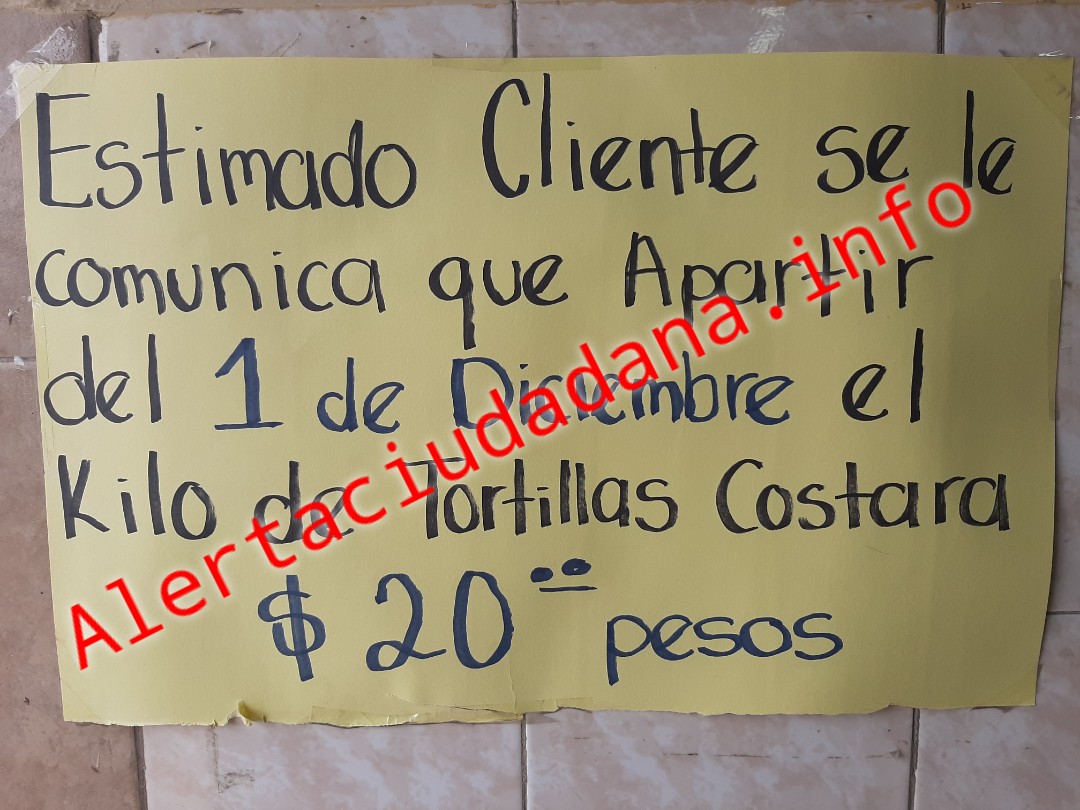 Estimado Cliente se le
comunica que Apartir
del 1 de Diciembre el
Kilo de Tortillas Costara
$ 20.00 pesos
Alertaciudadana.info